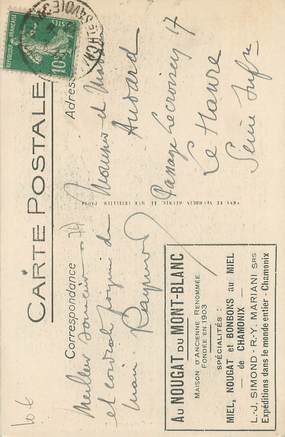 CARTE POSTALE
Correspondance
Adresse
Meilleur souvenir
et cordiale poignée de
main
Raymond
Monsieur et Madame
Audard
Passage Lecroisey 17
Le Havre
Seine Infre
AU NOUGAT DU MONT-BLANC
MAISON D'ANCIENNE RENOMMÉE
FONDÉE EN 1903
SPÉCIALITÉS :
MIEL, NOUGAT ET BONBONS AU MIEL
— DE CHAMONIX —
L.-J. SIMOND - R.-Y. MARIANI SRS
Expéditions dans le monde entier - Chamonix
10c